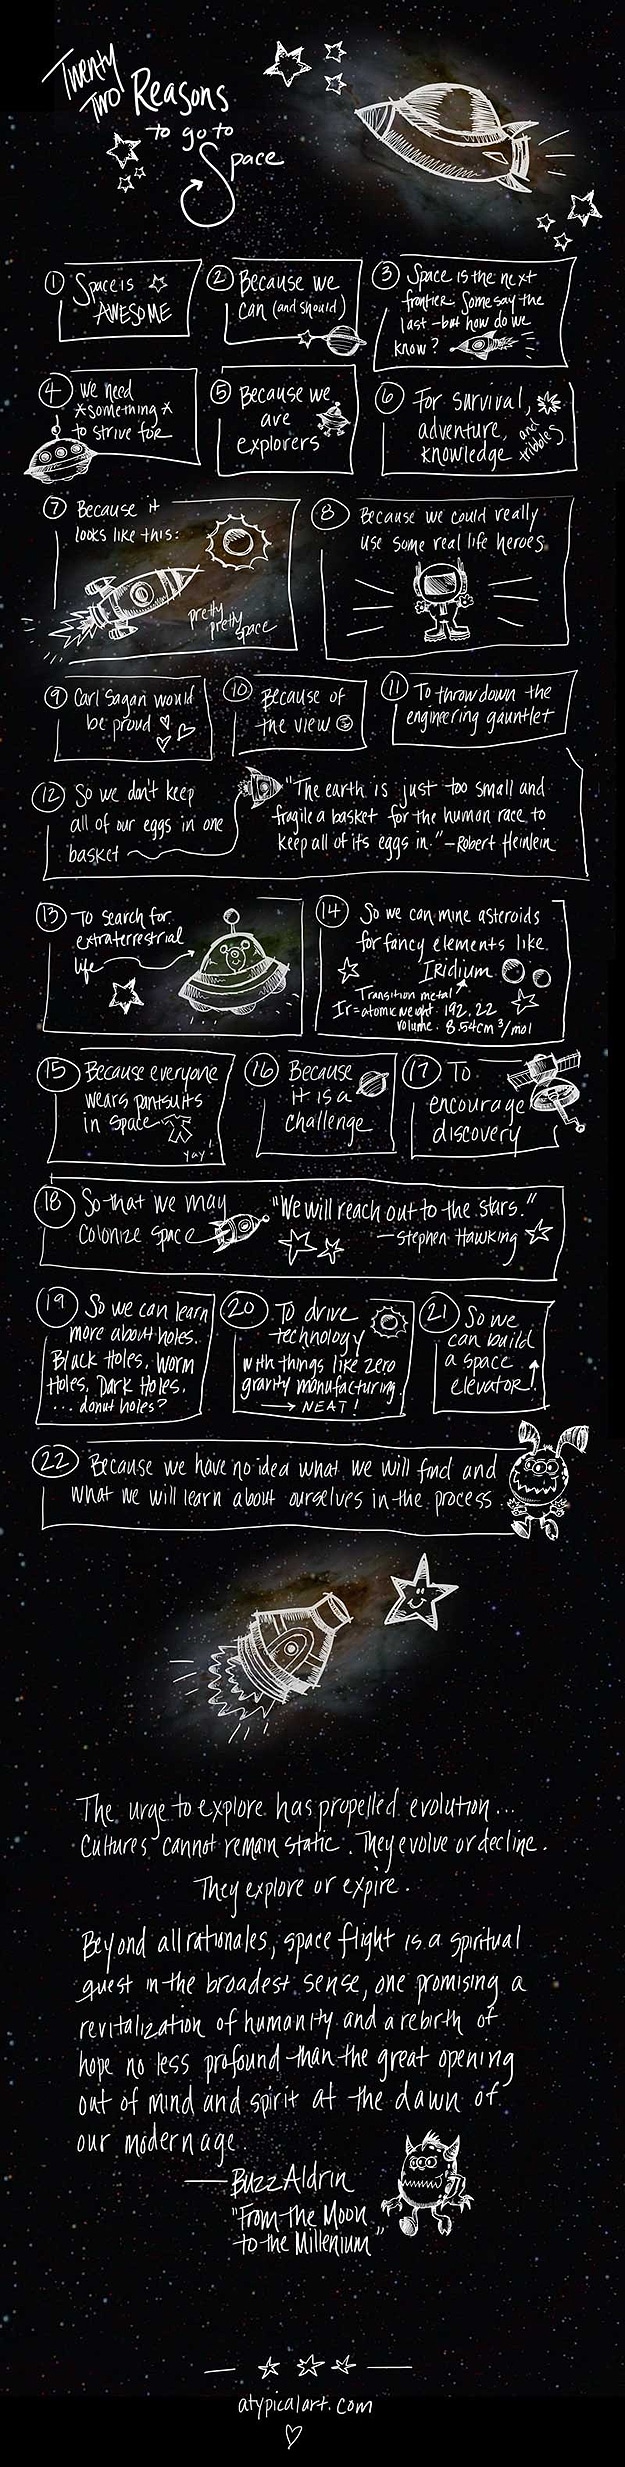 Twenty
Two Reasons
to go to
Space
1 Space is
AWESOME
2 Because we
can (and should)
3 Space is the next
frontier. Some say the
last - but how do we
know?
4 We need
*something*
to strive for
5 Because we
are
explorers
6 For survival,
adventure, and
knowledge tribbles
7 Because it
looks like this:
pretty
pretty
space
8 Because we could really
use some real life heroes
9 Carl Sagan would
be proud
10 Because of
the view
11 To throw down the
engineering gauntlet
12 So we don't keep
all of our eggs in one
basket
"The earth is just too small and
fragile a basket for the human race to
keep all of its eggs in." - Robert Heinlein
13 To search for
extraterrestrial
life
14 So we can mine asteroids
for fancy elements like
Iridium
Transition metal
Ir = atomic weight 192.22
volume. 8.54cm³/mol
15 Because everyone
wears pantsuits
in space
yay!
16 Because
it is a
challenge
17 To
encourage
discovery
18 So that we may
colonize space
"We will reach out to the stars."
- Stephen Hawking
19 So we can learn
more about holes.
Black Holes, Worm
Holes, Dark Holes,
... donut holes?
20 To drive
technology
with things like zero
gravity manufacturing
→ NEAT!
21 So we
can build
a space
elevator!
22 Because we have no idea what we will find and
what we will learn about ourselves in the process
The urge to explore has propelled evolution...
Cultures cannot remain static. They evolve or decline.
They explore or expire.
Beyond all rationales, space flight is a spiritual
quest in the broadest sense, one promising a
revitalization of humanity and a rebirth of
hope no less profound than the great opening
out of mind and spirit at the dawn of
our modern age.
— Buzz Aldrin
"From the Moon
to the Millenium"
atypicalart.com